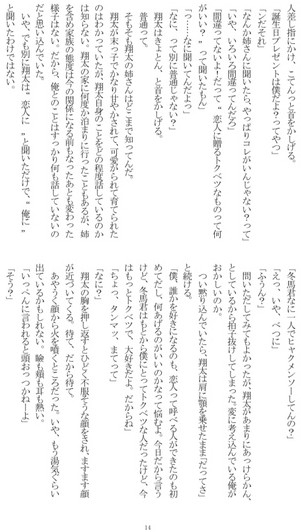 人差し指にかけ、こてんっと首をかしげる。
「誕生日プレゼントは僕だよ？ってやつ」
「ンだそれ」
「なんか姉さんに聞いたら、やっぱりコレがいいんじゃない？って」
「いや、いろいろ間違ってんだろ」
「間違ってないよ！だって『恋人に贈るトクベツなものって何
がいい？』って聞いたもん」
「っ…なに聞いてんだよ」
「なに、って別に普通じゃない？」
翔太はきょとん、と首をかしげる。
普通って。
そもそも翔太の姉さんはどこまで知ってんだ。
翔太が末っ子でかなり甘やかされて、可愛がられて育てられた
のはわかっていたが、翔太自身のことをどの程度話しているのか
は知らない。翔太の家に何度か泊まりに行ったこともあるが、姉
を含め家族の態度は今の関係になる前もなったあとも変わった
様子はない。だから、俺とのことはすっかり何も話していないの
だと思い込んでいた。
いや、でも別に翔太は、恋人に〝と聞いただけで、〝俺に〟
と聞いたわけではない。
「冬馬君なに一人でヒャクメンソーしてんの？」
「えっ、いや、べつに」
「ふうん？」
問いただしてみてもよかったが、翔太があまりにあっけらかん、
としているから拍子抜けしてしまった。変に考え込んでいる俺が
おかしいのか。
つい黙り込んでいたら、翔太は肩に顎を乗せたまま「だってさ」
と続ける。
「僕、誰かを好きになるのも、恋人って呼べる人ができたのも初
めてだし、何あげるのがいいのかなって悩むよ。今日だから言う
けど、冬馬君はもとから僕にとってトクベツな人だったけど、今
はもっとトクベツで、大好きだよ。だからね」
「ちょっ、タンマッ、まてって」
「なに？」
翔太の胸を押し返すとひどく不服そうな顔をされ、ますます顔
が近づいてくる。待て、だから待て。
あやうく顔から火を噴くところだった。いや、もう湯気くらい
出ているかもしれない。瞼も頬も耳も熱い。
「いっぺんに言われると頭おっつかねーよ」
「そう？」
14